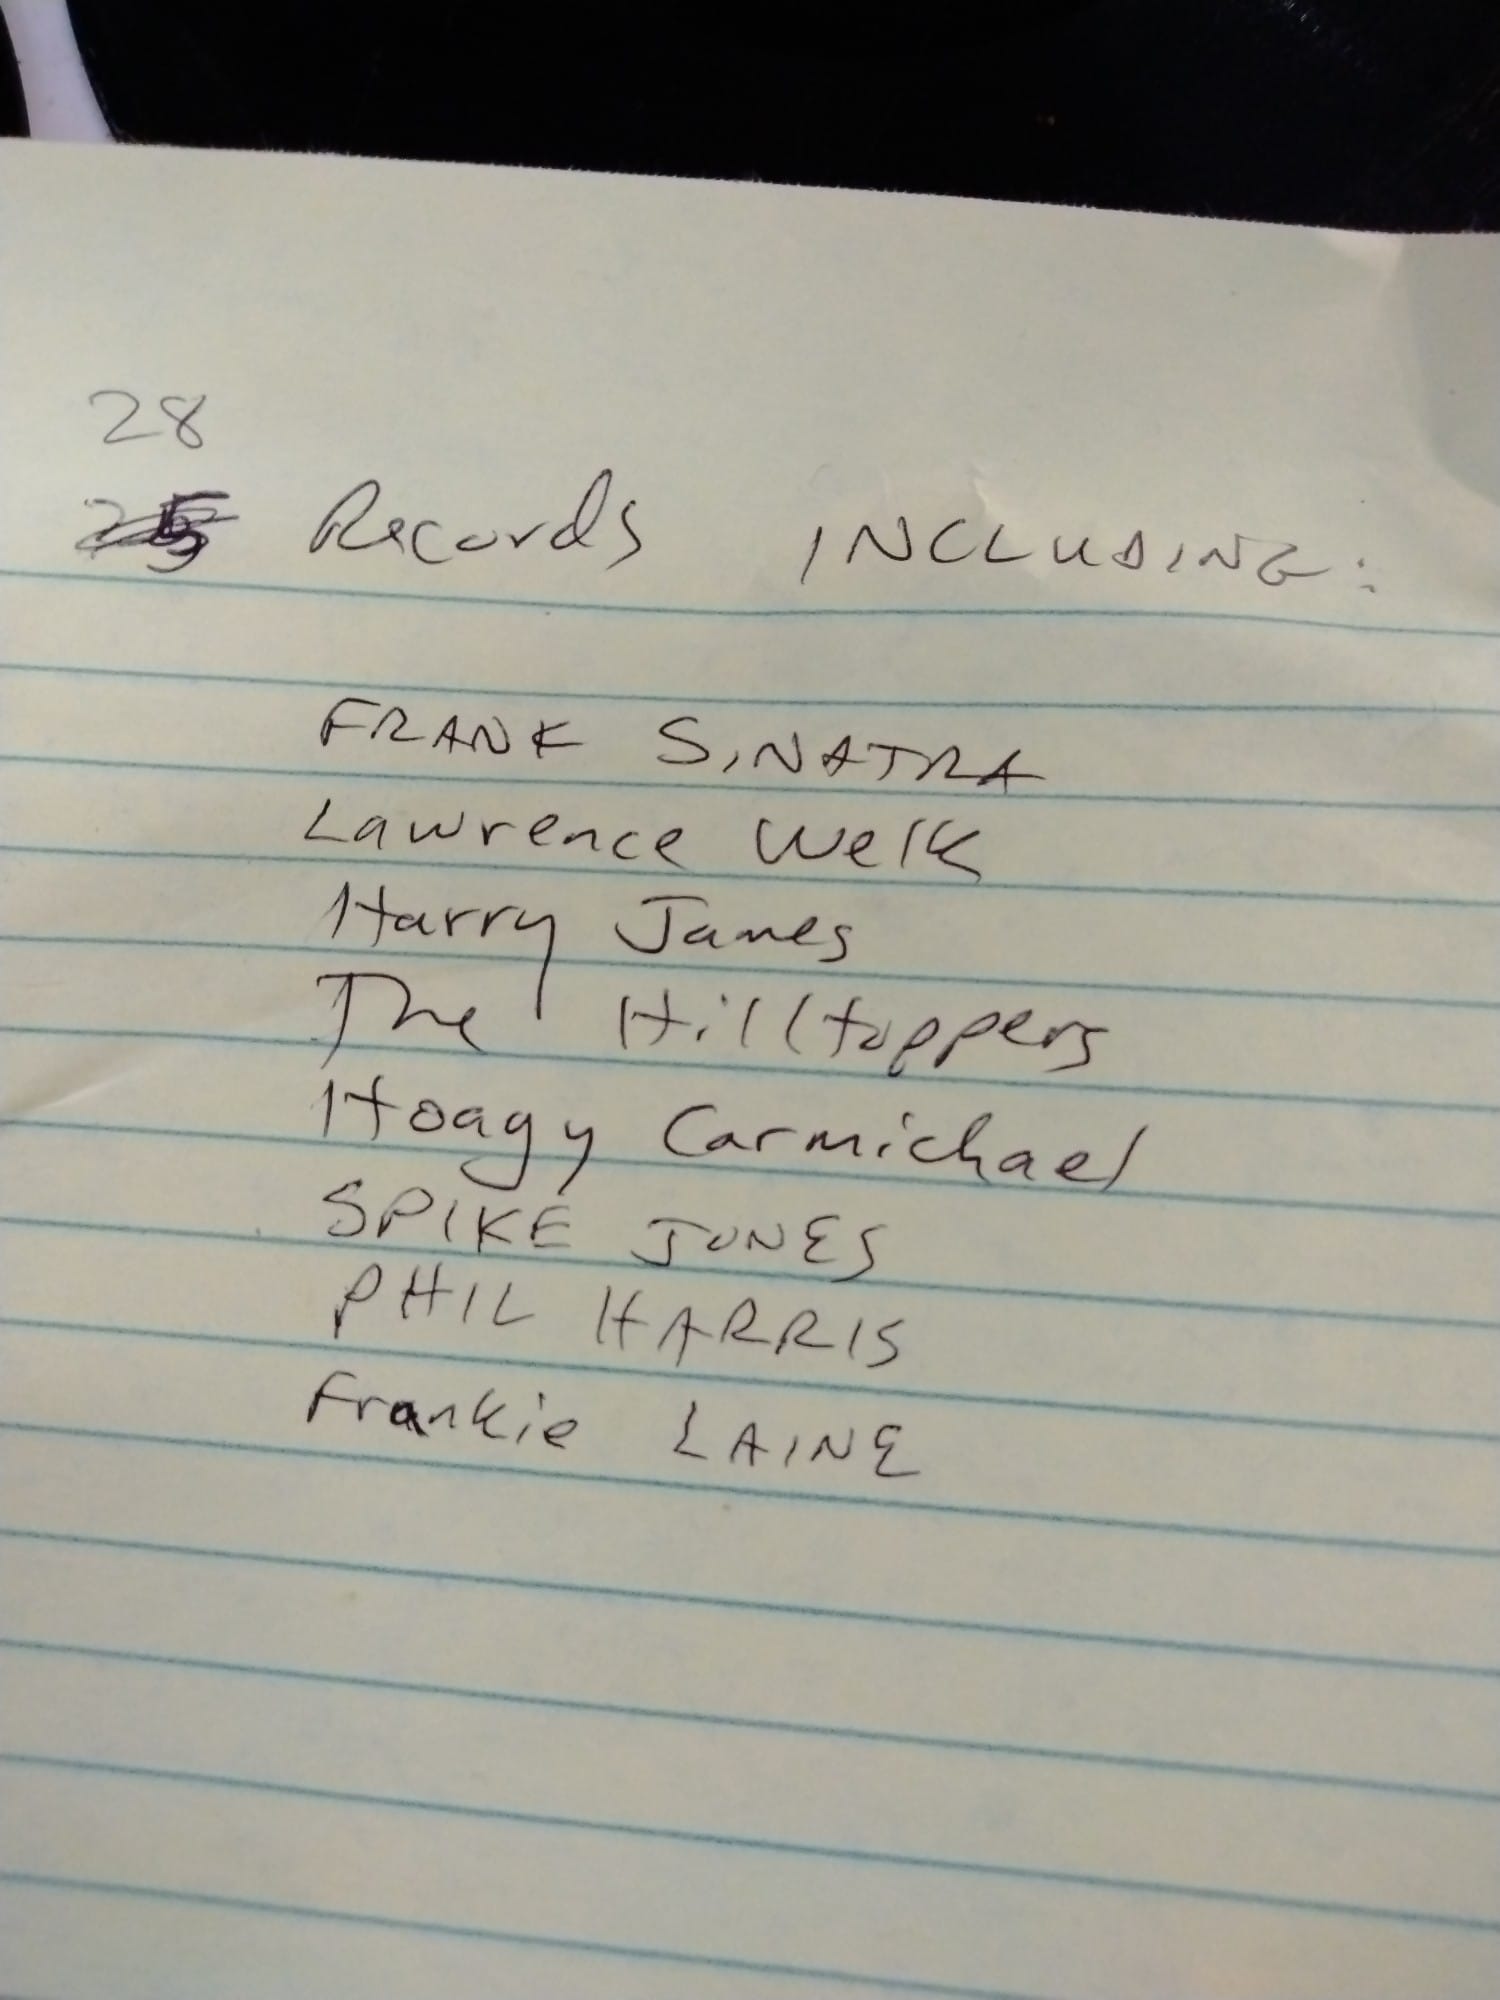 28
25 Records INCLUDING:
FRANK SINATRA
Lawrence Welk
Harry James
The Hilltoppers
Hoagy Carmichael
SPIKE JONES
PHIL HARRIS
Frankie LAINE